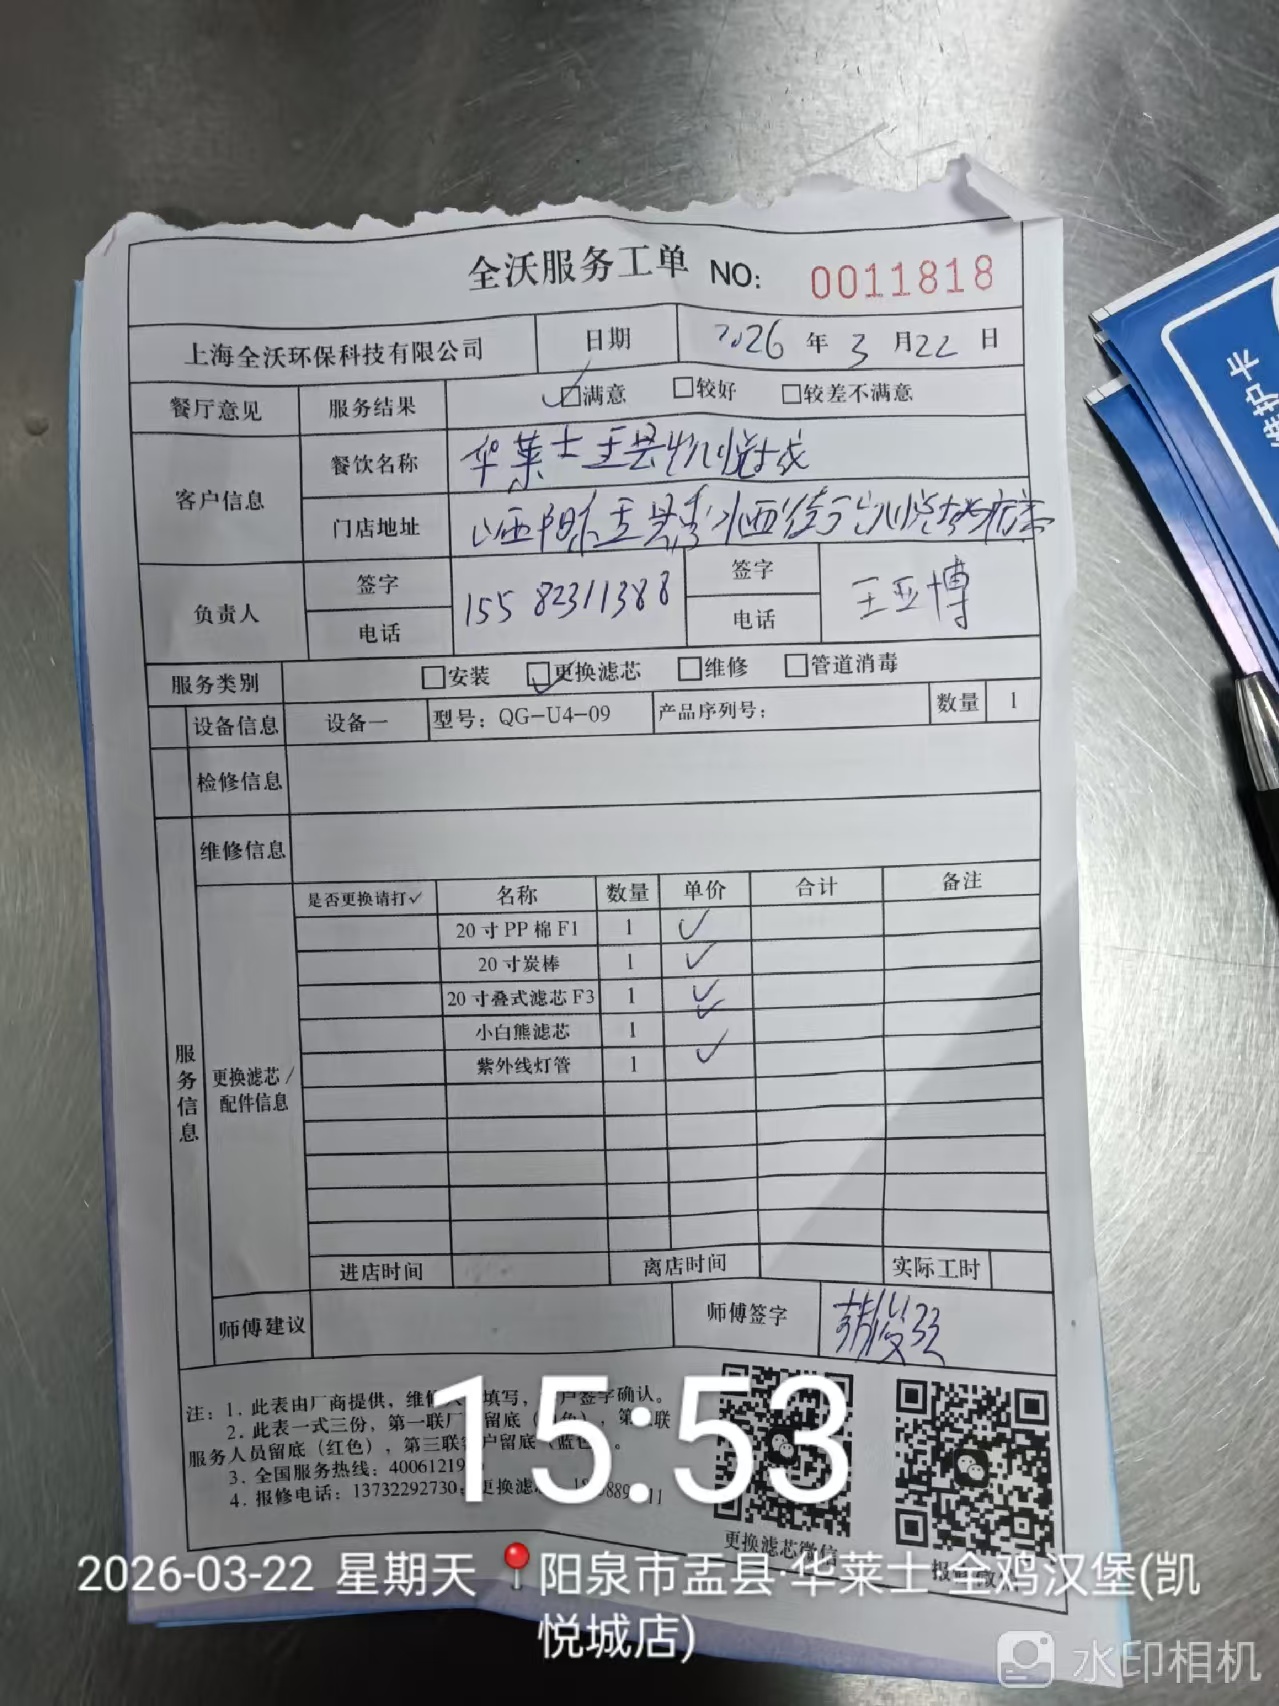 全沃服务工单 NO: 0011818
上海全沃环保科技有限公司 日期 2026 年 3 月 22 日
餐厅意见 服务结果 ☑满意 □较好 □较差不满意
客户信息 餐饮名称 华莱士盂县凯悦城
门店地址
负责人 签字 电话 15582311388 签字 电话 王亚博
服务类别 □安装 ☑更换滤芯 □维修 □管道消毒
设备信息 设备一 型号: QG-U4-09 产品序列号: 数量 1
检修信息
服务信息 维修信息
更换滤芯/配件信息 是否更换请打✓ 名称 数量 单价 合计 备注
20寸PP棉F1 1 ✓
20寸炭棒 1 ✓
20寸叠式滤芯F3 1 ✓
小白熊滤芯 1 ✓
紫外线灯管 1 ✓
进店时间 离店时间 实际工时
师傅建议 师傅签字
注: 1. 此表由厂商提供, 维修 填写, 户签字确认。
2. 此表一式三份, 第一联厂 留底( 色), 第 联
服务人员留底(红色), 第三联客户留底(蓝色)。
3. 全国服务热线: 4006121
4. 报修电话: 13732292730; 更换滤
更换滤芯微信
15:53
2026-03-22 星期天 阳泉市盂县·华莱士·全鸡汉堡(凯
悦城店)
水印相机
维护卡